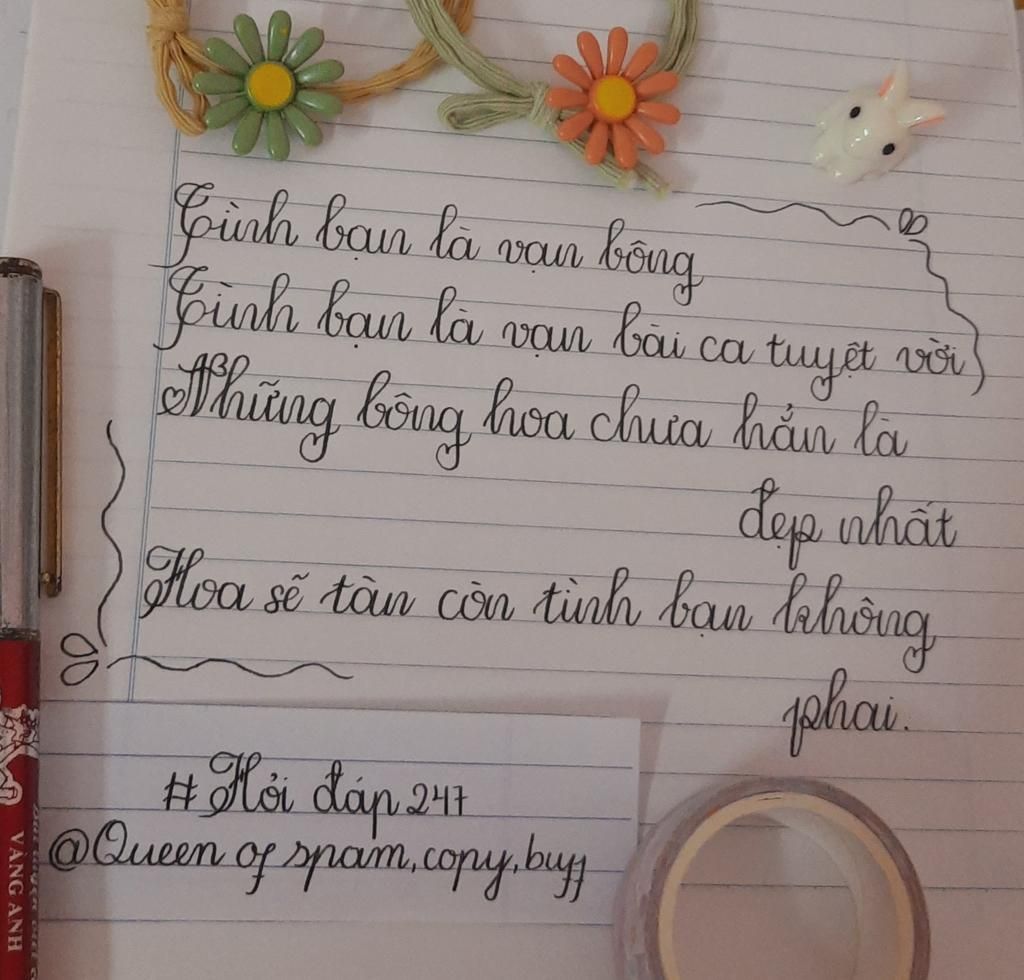 Tình bạn là vạn bông
Tình bạn là vạn bài ca tuyệt vời
Những bông hoa chưa hẳn là
đẹp nhất
Hoa sẽ tàn còn tình bạn không
phai.
#Hỏi đáp 247
@Queen of spam, copy, buff
VANG ANH